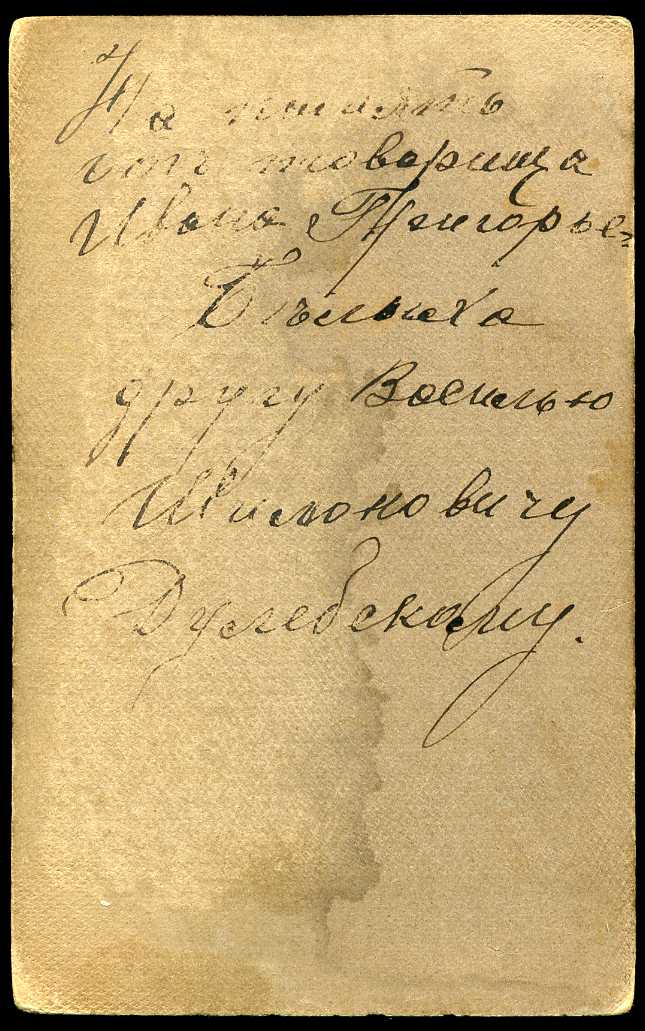 На память
отъ товарища
Ивана Григорье-
Бѣлыха
другу Василью
Шимоновичу
Дулебскому.